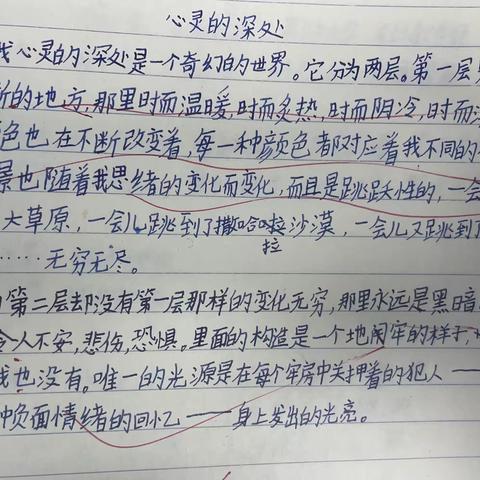 心灵的深处
我心灵的深处是一个奇幻的世界。它分为两层。第一层
新的地方,那里时而温暖,时而炙热,时而阴冷,时而
色也在不断改变着,每一种颜色都对应着我不同的
景也随着我思绪的变化而变化,而且是跳跃性的,一会
大草原,一会儿跳到了撒哈啦沙漠,一会儿又跳到了
拉
……无穷无尽。
第二层却没有第一层那样的变化无穷,那里永远是黑暗
令人不安,悲伤,恐惧。里面的构造是一个地牢的样子,
我也没有。唯一的光源是在每个牢房中关押着的犯人——
种负面情绪的回忆——身上发出的光亮。